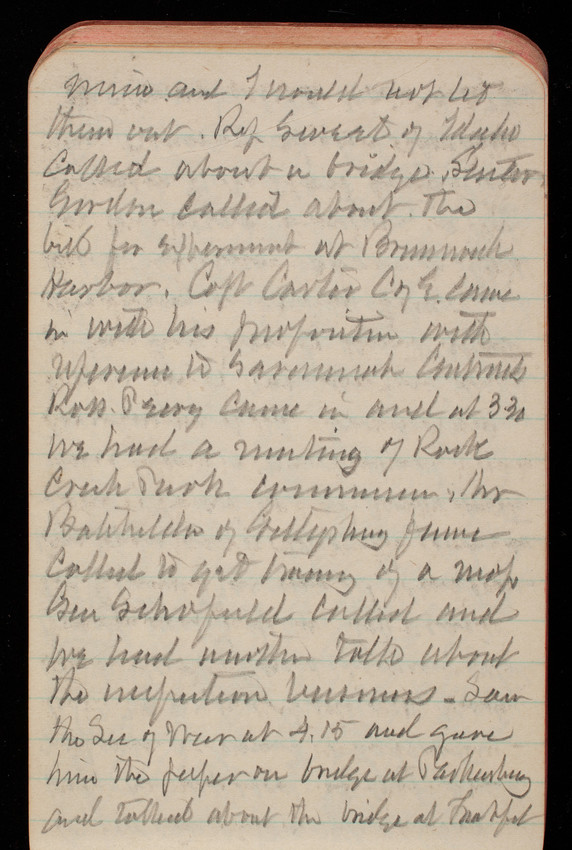 mine and I would not let
them out. Rep Sweet of Idaho
called about a bridge. Senator
Gordon called about the
bill for experiment at Brunswick
Harbor. Capt Carter C of E. came
in with his proposition with
reference to Savannah Contracts
Ross Perry came in and at 330
we had a meeting of Rock
Creek Park commission, Mr
Batchelder of Gettysburg fame
called to get tracing of a map
Gen Schofield called and
we had another talk about
the inspection business - Saw
the Sec of War at 4.15 and gave
him the paper on bridge at Parkersburg
and talked about the bridge at